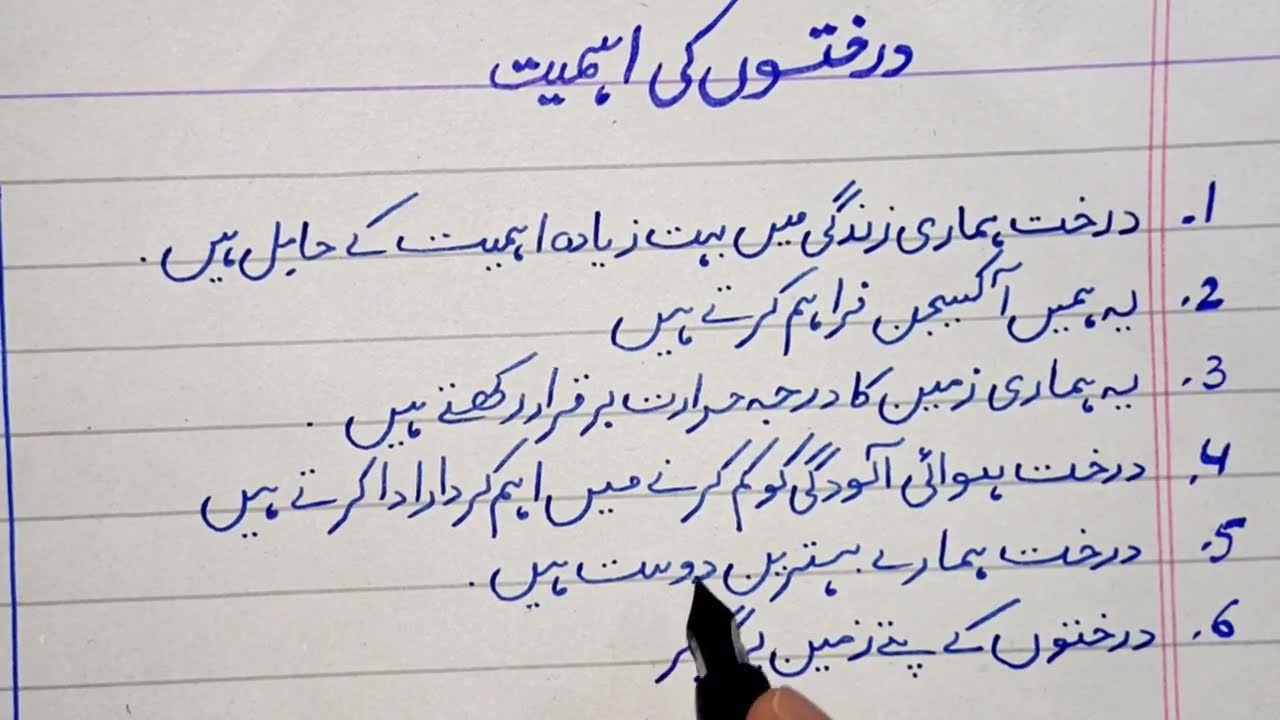 درختوں کی اہمیت
1. درخت ہماری زندگی میں بہت زیادہ اہمیت کے حامل ہیں.
2. یہ ہمیں آکسیجن فراہم کرتے ہیں
3. یہ ہماری زمین کا درجہ حرارت برقرار رکھتے ہیں.
4. درخت ہوائی آلودگی کو کم کرنے میں اہم کردار ادا کرتے ہیں
5. درخت ہمارے بہترین دوست ہیں.
6. درختوں کے پتے زمین